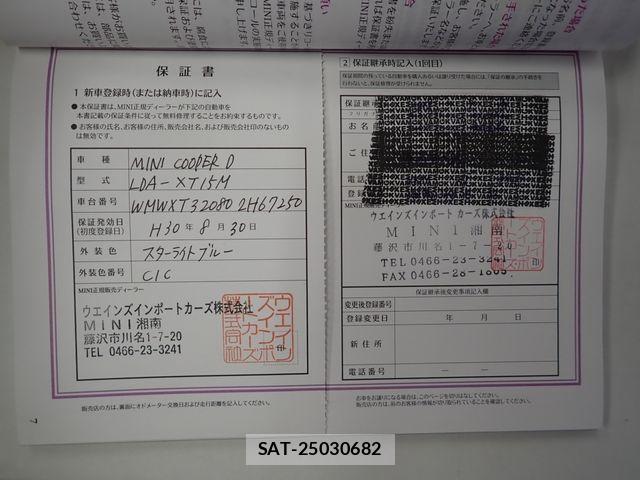 保証書
1 新車登録時(または納車時)に記入
●本保証書は、MINI正規ディーラーが下記の自動車を
本書記載の保証条件に従って無料修理することをお約束するものです。
●お客様の氏名、お客様の住所、販売会社名、および販売会社印のないもの
は無効です。
車種 MINI COOPER D
型式 LDA-XT15M
車台番号 WMWXT320802H67250
保証発効日
(初度登録日) H30年8月30日
外装色 スターライトブルー
外装色番号 C1C
MINI正規販売ディーラー
ウエインズインポートカーズ株式会社
MINI湘南
藤沢市川名1-7-20
TEL 0466-23-3241
販売店の方は、裏面にオドメーター交換日および走行距離を記入してください。
7
2 保証継承時記入(1回目)
保証期間の残っている自動車を購入あるいは譲り受けた場合には、「保証の継承」の手続きを
行わないと、保証修理が受けられません。
保証継承
フリガナ
お名前
ご住
電話
登録
MINI正規販売
ウエインズインポートカーズ株式会社
MINI湘南
藤沢市川名1-7-20
TEL 0466-23-3241
FAX 0466-28-1805
保証継承後変更事項記入欄
変更後登録番号
登録変更日 年 月 日
新住所
電話番号 — —
お車をお譲りになる場合は、このページを切りはなしてください。
販売店の方は、前のお客様の情報が切り取られていることを確認してください。
SAT-25030682